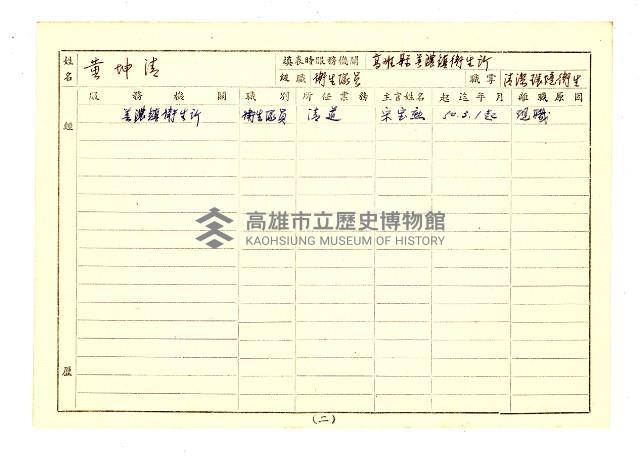 姓名 黃坤清 填表時服務機關 高雄縣美濃鎮衛生所
級職 衛生隊員 職掌 清潔環境衛生
服務機關 職別 所任業務 主官姓名 起迄年月 離職原因
美濃鎮衛生所 衛生隊員 清道 宋 50.3.1起 現職
經歷
高雄市立歷史博物館
KAOHSIUNG MUSEUM OF HISTORY
(二)